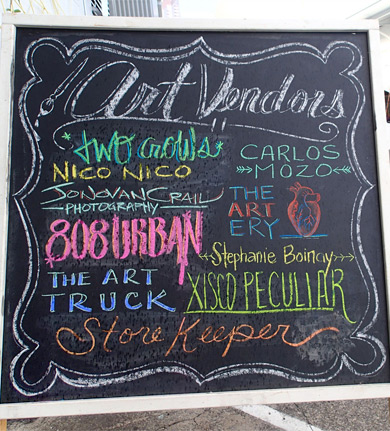 Art Vendors
two crows
NICO NICO
JONOVAN CRAIL
PHOTOGRAPHY
808 URBAN
THE ART
TRUCK
CARLOS
MOZO
THE
ART
ERY
Stephanie Boinay
XISCO PECULIAR
Store Keeper